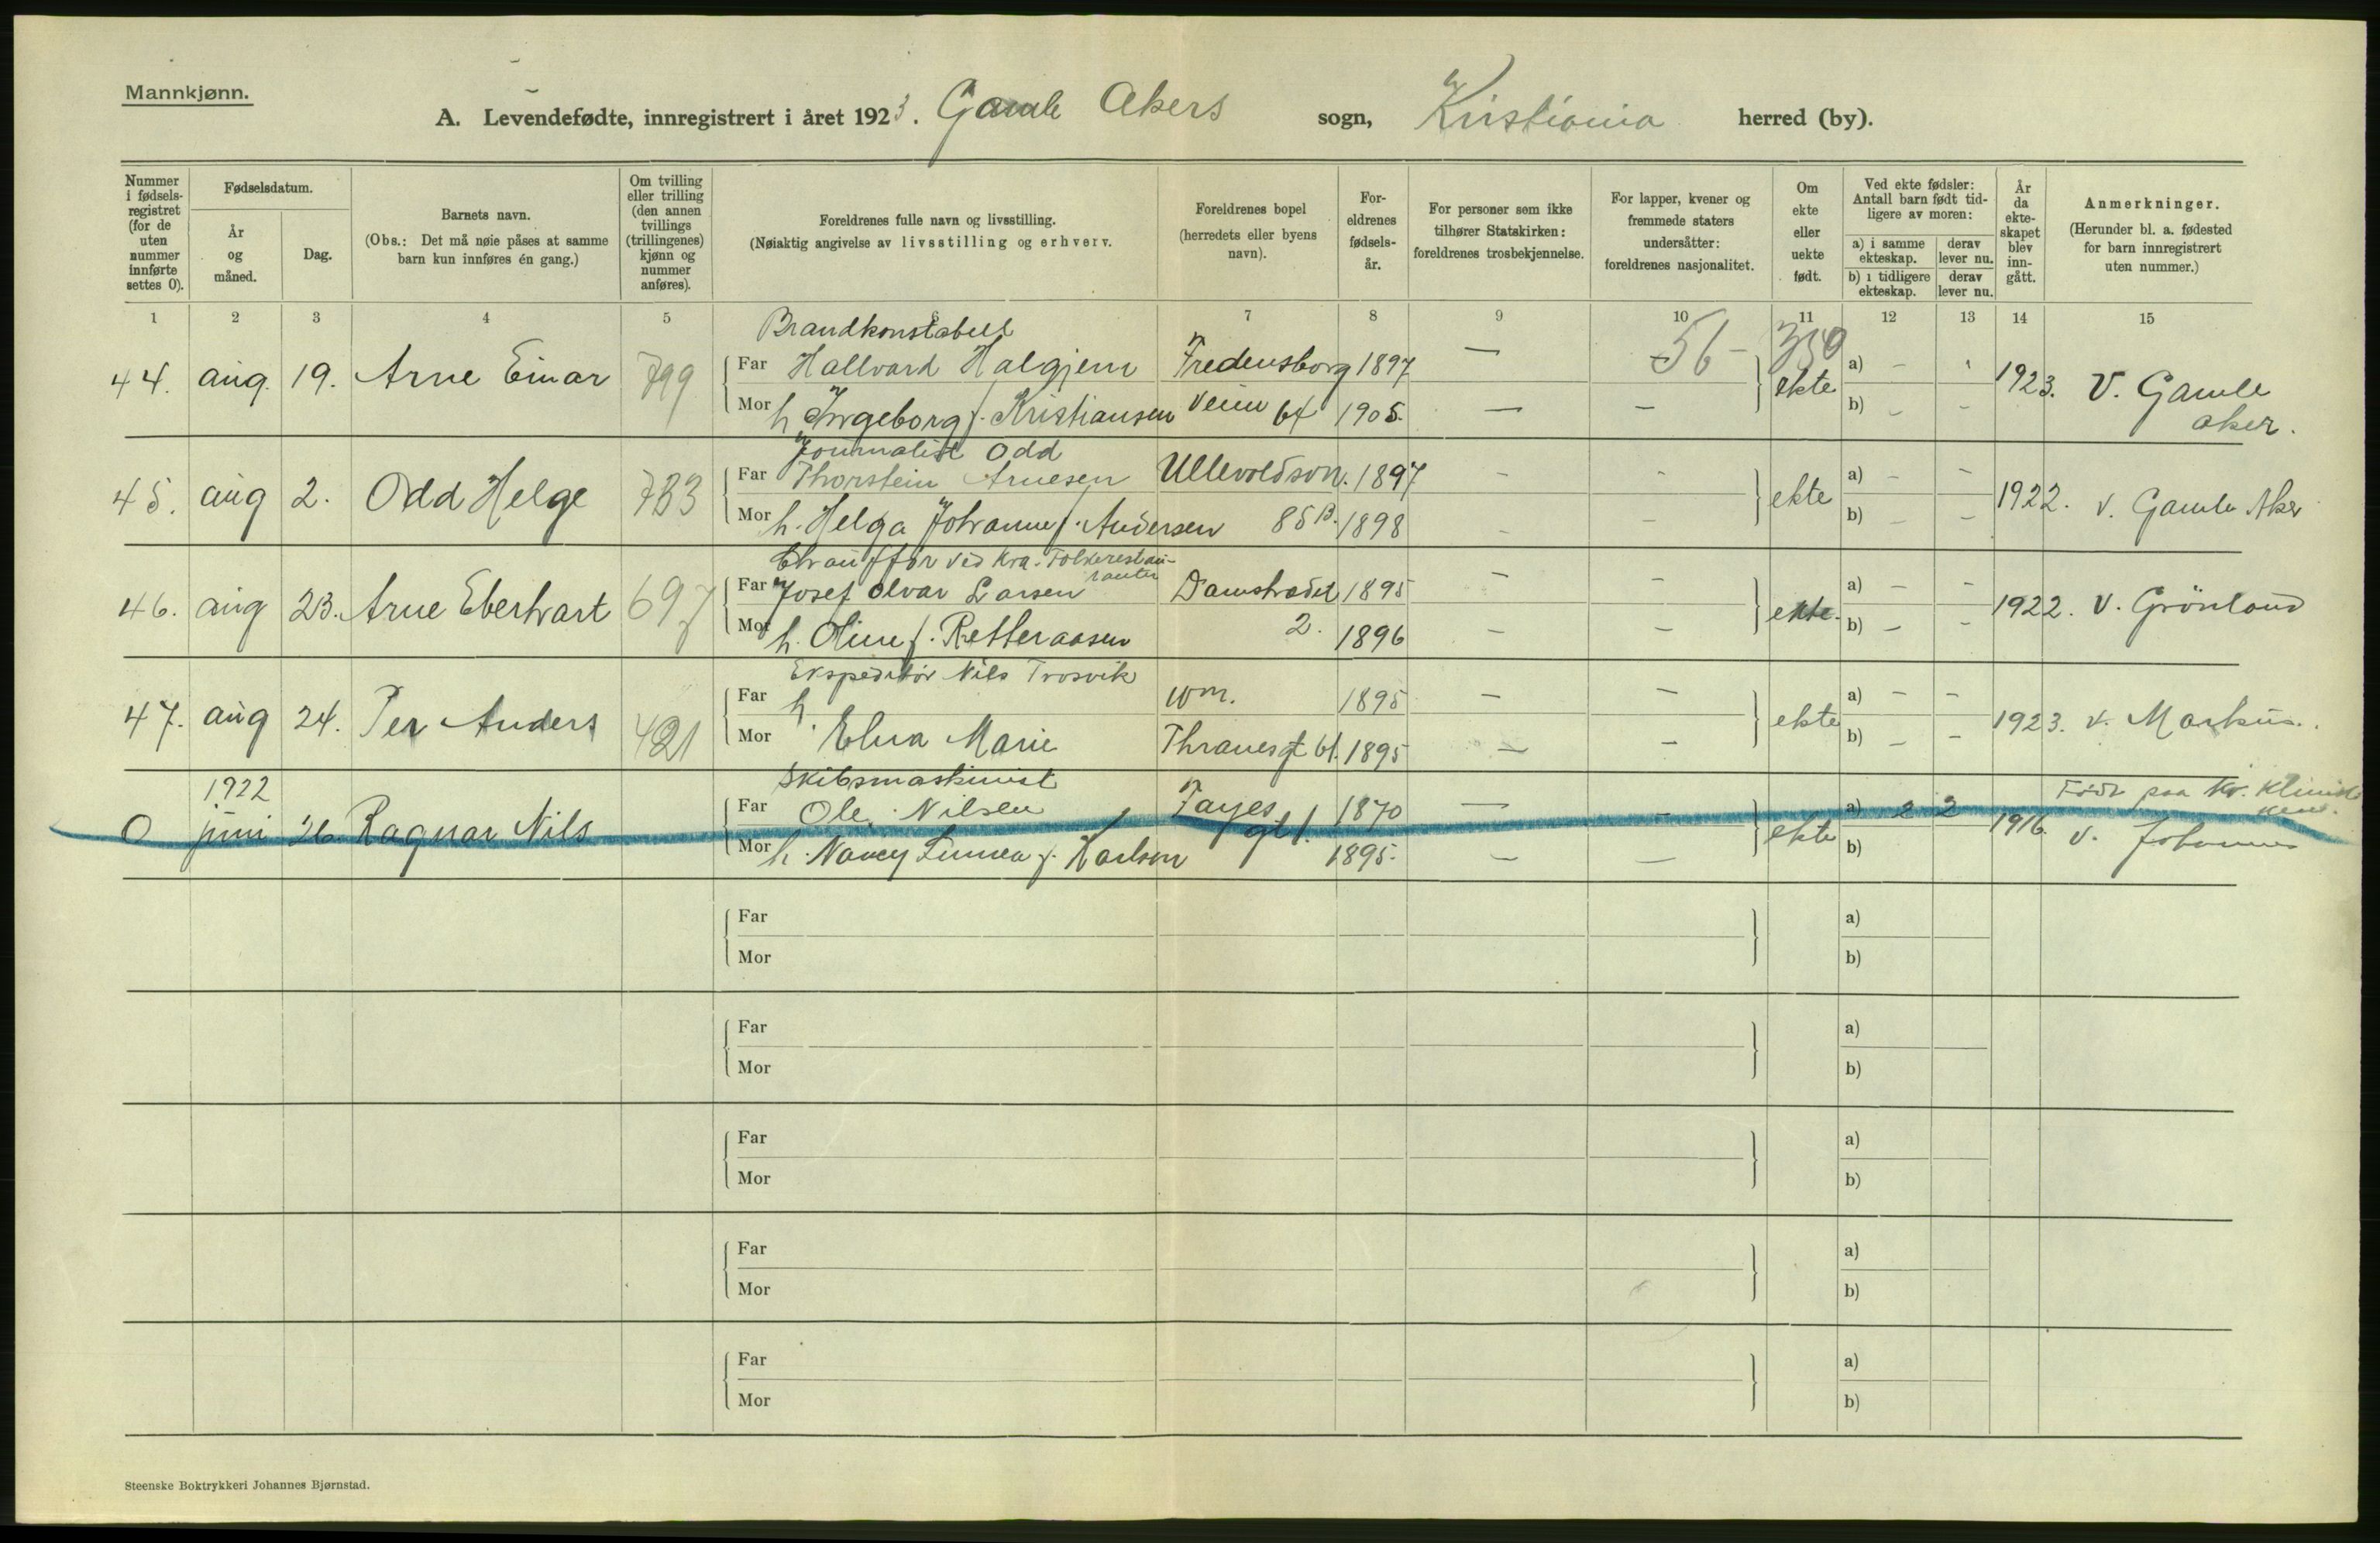 Mannkjønn.
A. Levendefødte, innregistrert i året 1923. Gamle Akers sogn, Kristiania herred (by).
Nummer i fødsels-registret (for de uten nummer innførte settes 0).
Fødselsdatum.
År og måned.
Dag.
Barnets navn.
(Obs.: Det må nøie påses at samme barn kun innføres én gang.)
Om tvilling eller trilling (den annen tvillings (trillingenes) kjønn og nummer anføres).
Foreldrenes fulle navn og livsstilling.
(Nøiaktig angivelse av livsstilling og erhverv.
Foreldrenes bopel (herredets eller byens navn).
For-eldrenes fødsels-år.
For personer som ikke tilhører Statskirken: foreldrenes trosbekjennelse.
For lapper, kvener og fremmede staters undersåtter: foreldrenes nasjonalitet.
Om ekte eller uekte født.
Ved ekte fødsler: Antall barn født tid-ligere av moren:
a) i samme ekteskap. derav lever nu.
b) i tidligere ekteskap. derav lever nu.
År da ekte-skapet blev inn-gått.
Anmerkninger.
(Herunder bl. a. fødested for barn innregistrert uten nummer.)
1 2 3 4 5 6 7 8 9 10 11 12 13 14 15
Brandkonstabel
56 - 350
44. aug. 19. Arne Einar 799 Far Hallvard Halgjem Fredensborg 1897 — ekte a) - 1923. V. Gamle Aker.
Mor h. Ingeborg f. Kristiansen veien 64 1905. — — b) - -
Journalist Odd
45. aug 2. Odd Helge 733 Far Thorstein Arnesen Ullevoldsvn. 1897 - - ekte a) - - 1922. v. Gamle Aker
Mor h. Helga Johanne f. Andersen 85 B. 1898 - - b) - -
Chauffør ved Kra. Folkerestauranter
46. aug 23. Arne Eberhart 697 Far Josef Olvar Larsen Damstrædet 1895 - - ekte. a) - - 1922. V. Grönland
Mor h. Oline f. Retteraasen 2. 1896 - - b) - -
Ekspeditör Nils Trosvik
47. aug 24. Per Anders 421 Far h. Wm. 1895 - - ekte a) - - 1923. v. Markus.
Mor Elna Marie Thranesgt 61. 1895 - - b) - -
1922
Skibsmaskinist
Født paa Kv. Klinikken.
0 juni 26 Ragnar Nils Far Ole Nilsen Fayes gt 1. 1870 — - ekte a) 2 2 1916. v. Johannes
Mor h. Nancy Linnea f. Karlson 1895. - - b)
Far a)
Mor b)
Far a)
Mor b)
Far a)
Mor b)
Far a)
Mor b)
Far a)
Mor b)
Steenske Boktrykkeri Johannes Bjørnstad.